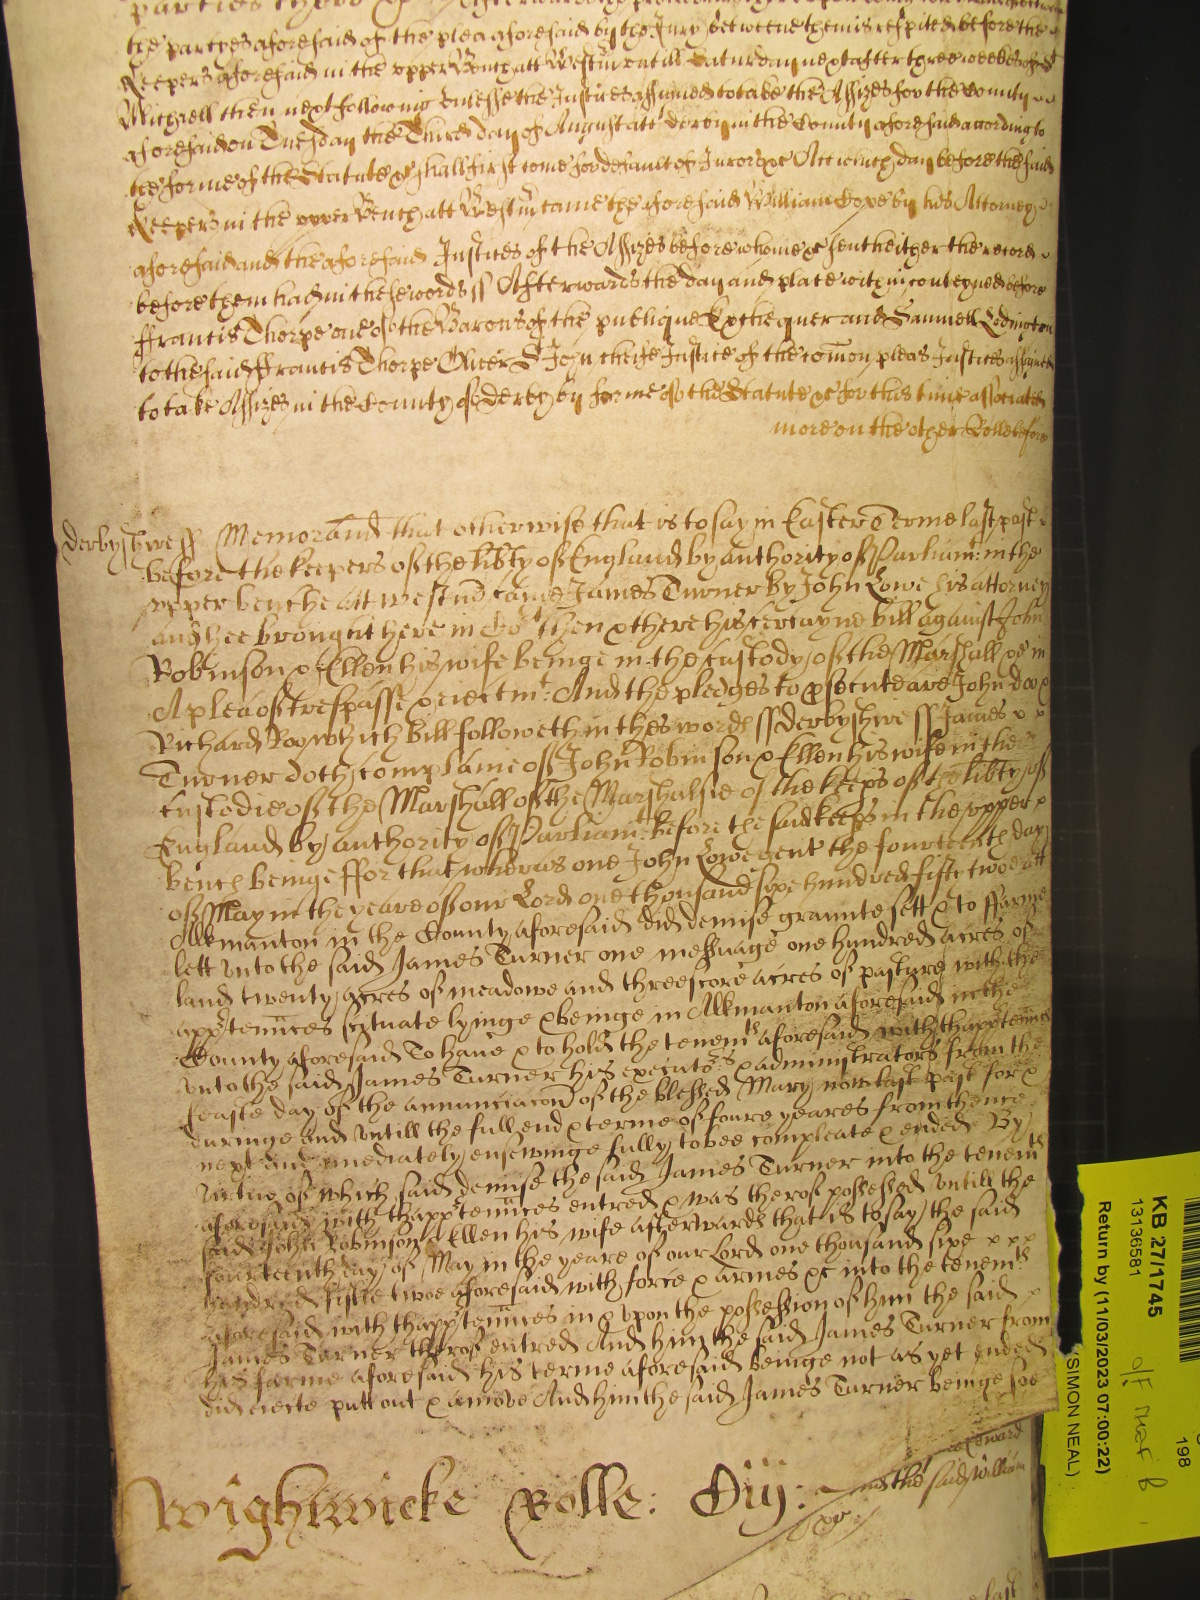 the partyes aforesaid of the plea aforesaid by the Jury betweene them is respited before the
Keepers aforesaid in the upper Bench att Westm untill Saturday next after three weekes of St
Michaell then next following unlesse the Justices assigned to take the Assizes for the County
aforesaid on Tuesday the Third day of August att derby in the County aforesaid according to
the forme of the Statute &c shall first come for default of Jurors &c Att which day before the said
Keepers in the upper Bench att Westm came the aforesaid William Cope by his Attorney
aforesaid and the aforesaid Justices of the Assizes before whome &c sent hither the record
before them had in these words ss Afterwards the day and place within conteyned before
ffrancis Thorpe one of the Barons of the publique Exchequer and Samuell Lodington
to the said ffrancis Thorpe Oliver St John cheife Justice of the comon pleas Justices assigned
to take Assizes in the County of derby by forme of the Statute &c for this time associated
more on the other Rolle before
derbyshire ss Memorand that otherwise that is to say in Easter Terme last past
before the keepers of the libty of England by authority of Parliamt in the
upper benche att westm came James Turner by John Lowe his attorney
and hee brought here in Cort then & there his certayne bill against John
Robinson & Ellen his wife beinge in the custody of the Marshall &c in
A plea of trespasse & eiectmt: And the pledges to psecute are John doo &
Richard Roo which bill followeth in thes words ss derbyshire ss James x x
Turner doth complaine of John Robinson & Ellen his wife in the
Custodie of the Marshall of the Marshalsie of the keeps of the libty of
England by authority of Parliamt before the said keeps in the upper x
bench beinge ffor that wheras one John Lowe gent the fourteenth day
of May in the yeare of our Lord one thousand sixe hundred fiftie twoe att
Alkmanton in the County aforesaid did demise graunte sett & to ffarme
lett unto the said James Turner one messuage one hundred acres of
land twenty acres of meadowe and threescore acres of pasture with the
apptennces scituate lyinge & beinge in Alkmanton aforesaid in the
County aforesaid To have & to hold the tenemts aforesaid with thapptennces
unto the said James Turner his executors & administrators from the
feaste day of the annunciacon of the blessed Mary now last past for &
duringe and untill the full end & terme of foure yeares from thence
next and imediately ensewinge fully to bee compleate & ended By
virtue of which said demise the said James Turner into the tenemts
aforesaid with thapptennces entred & was therof possessed untill the
said John Robinson & Ellen his wife afterwards that is to say the said
fourteenth day of May in the yeare of our Lord one thousand sixe x x x
hundred fiftie twoe aforesaid with force & armes &c into the tenemts
aforesaid with thapptennces in & upon the possession of him the said x
James Turner therof entred And him the said James Turner from
his farme aforesaid his terme aforesaid beinge not as yet ended
did eiecte putt out & amove And him the said James Turner beinge soe
Wightwicke Rolle:
the said William
KB 27/1745
13136581
Return by (11/03/2023 07:00:22)
(SIMON NEAL)
198